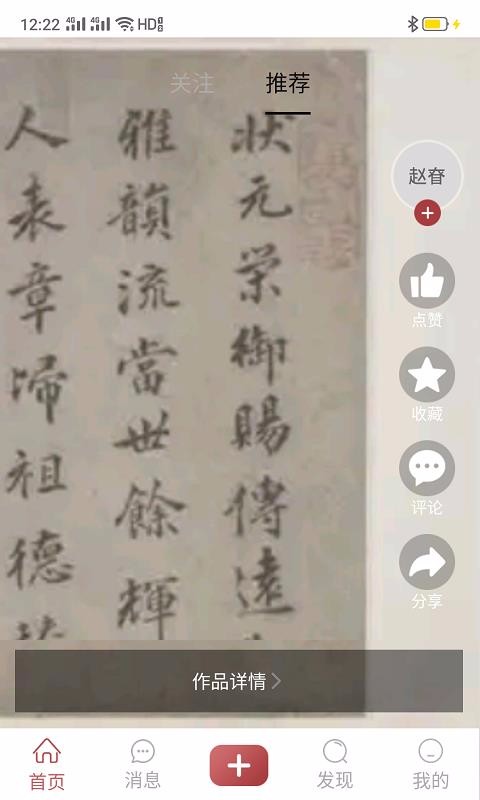 12:22
4G 4G HD
关注 推荐
赵春
点赞
收藏
评论
分享
状元荣御赐传远
雅韻流當世餘輝
人表章歸祖德
作品详情
首页 消息 发现 我的